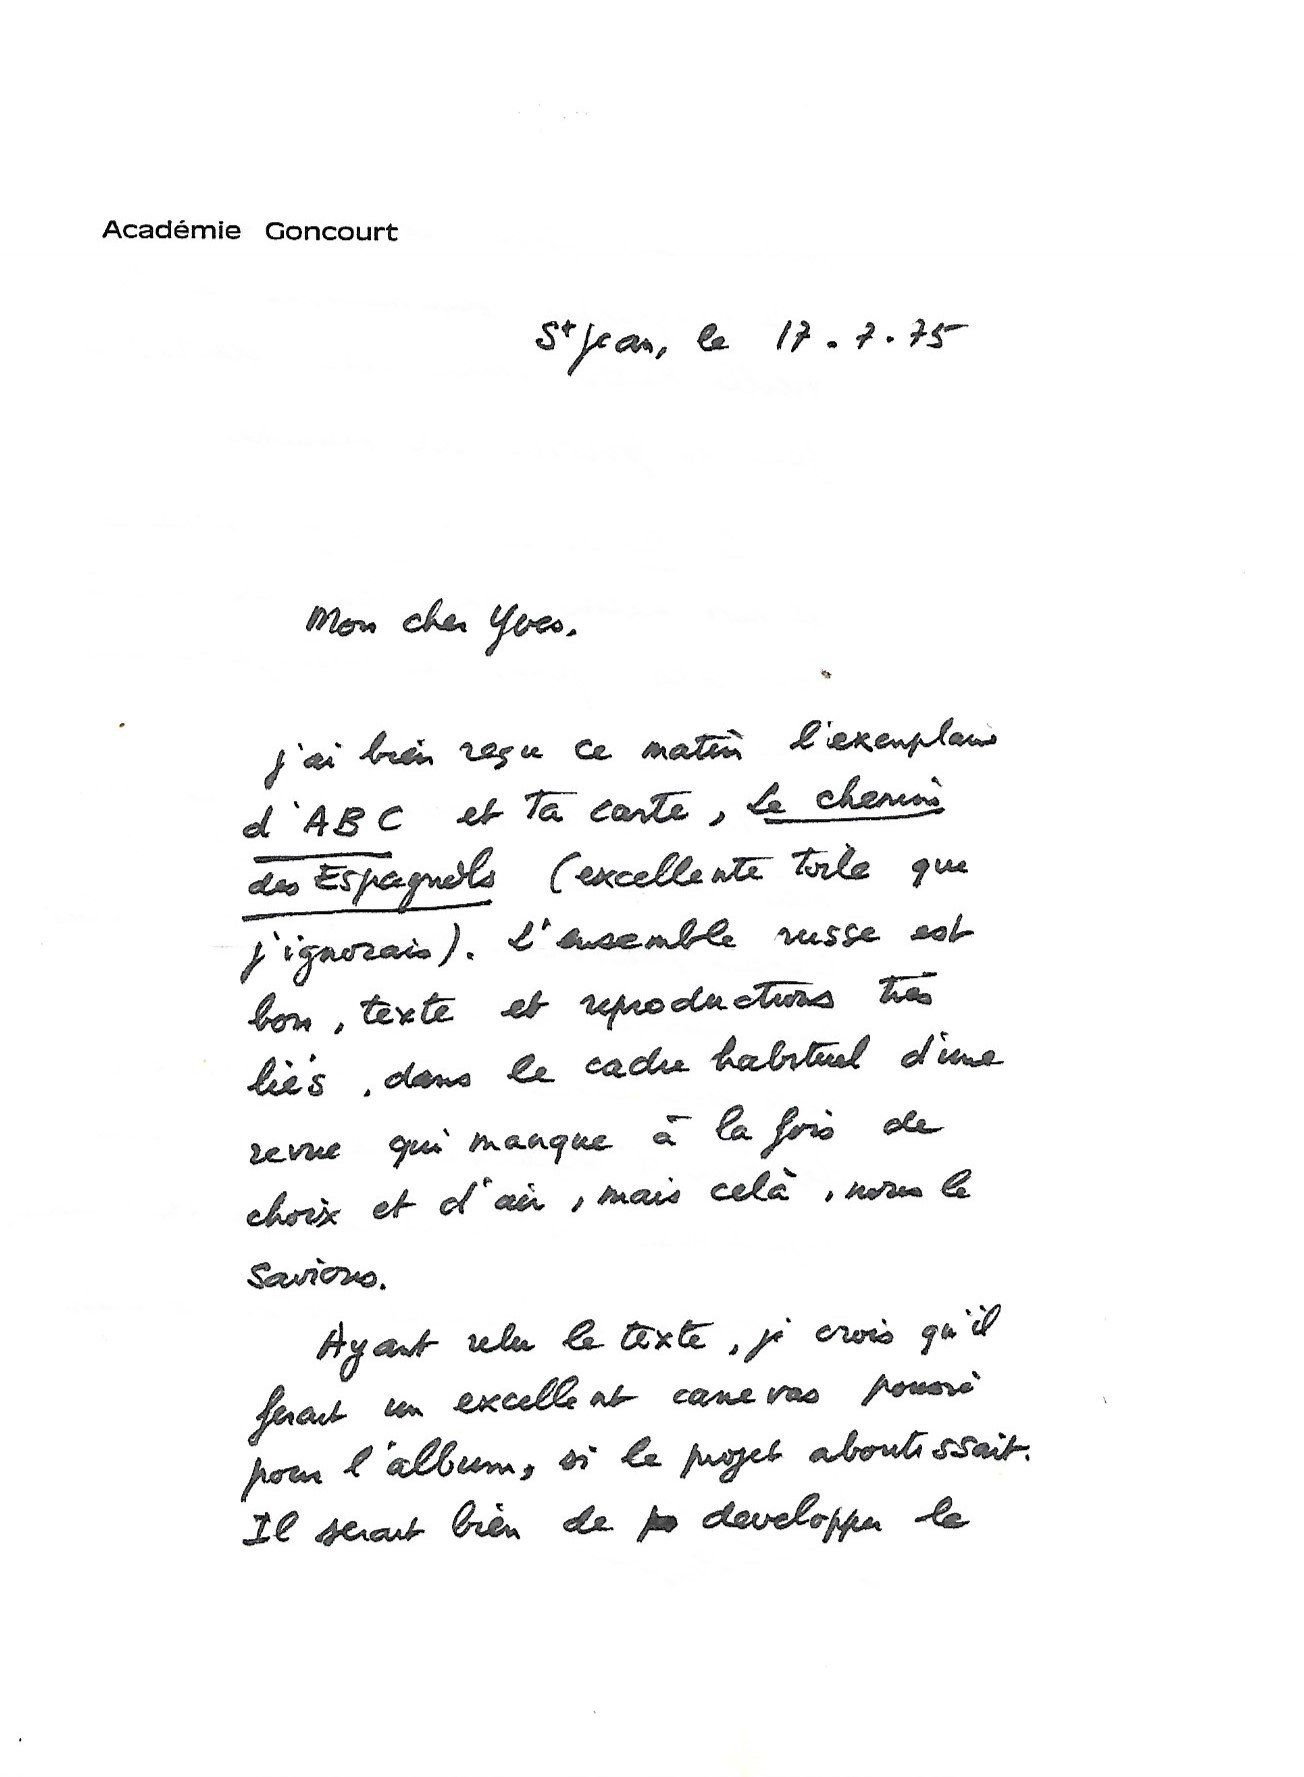 Académie Goncourt
St Jean, le 17.7.75
Mon cher Yves.
j'ai bien reçu ce matin l'exemplaire
d'ABC et ta carte, Le chemin
des Espagnols (excellente toile que
j'ignorais). L'ensemble russe est
bon, texte et reproductions très
liés, dans le cadre habituel d'une
revue qui manque à la fois de
choix et d'air, mais celà, nous le
savions.
Ayant relu le texte, je crois qu'il
ferait un excellent canevas
pour l'album, si le projet aboutissait.
Il serait bien de developper le